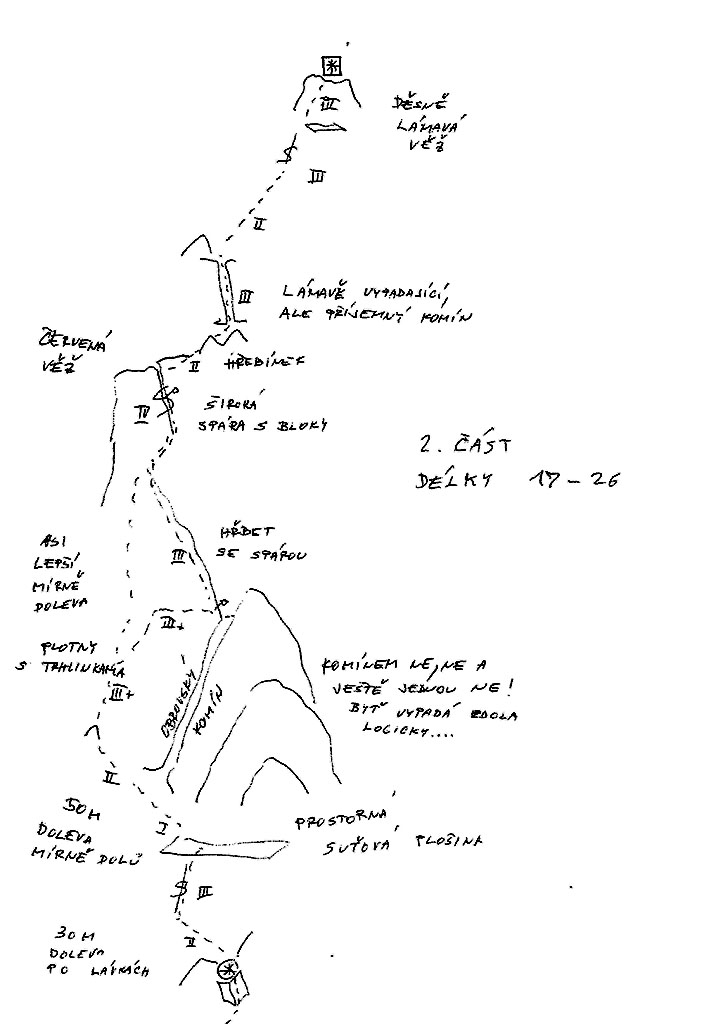 III
DĚSNĚ
LÁMAVÁ
VĚŽ
III
II
III
LÁMAVĚ VYPADAJÍCÍ,
ALE PŘÍJEMNÝ KOMÍN
ČERVENÁ
VĚŽ
II
HŘEBÍNEK
IV
ŠIROKÁ
SPÁRA S BLOKY
2. ČÁST
DÉLKY 17 - 26
HŘBET
SE SPÁROU
III
ASI
LEPŠÍ
MÍRNĚ
DOLEVA
III+
PLOTNY
S TRHLINKAMA
III+
OBROVSKÝ
KOMÍN
KOMÍNEM NE, NE A
JEŠTĚ JEDNOU NE!
BYŤ VYPADÁ ZDOLA
LOGICKY....
II
50M
DOLEVA
MÍRNĚ DOLŮ
I
PROSTORNÁ
SUŤOVÁ PLOŠINA
III
II
30M
DOLEVA
PO LÁVKÁCH